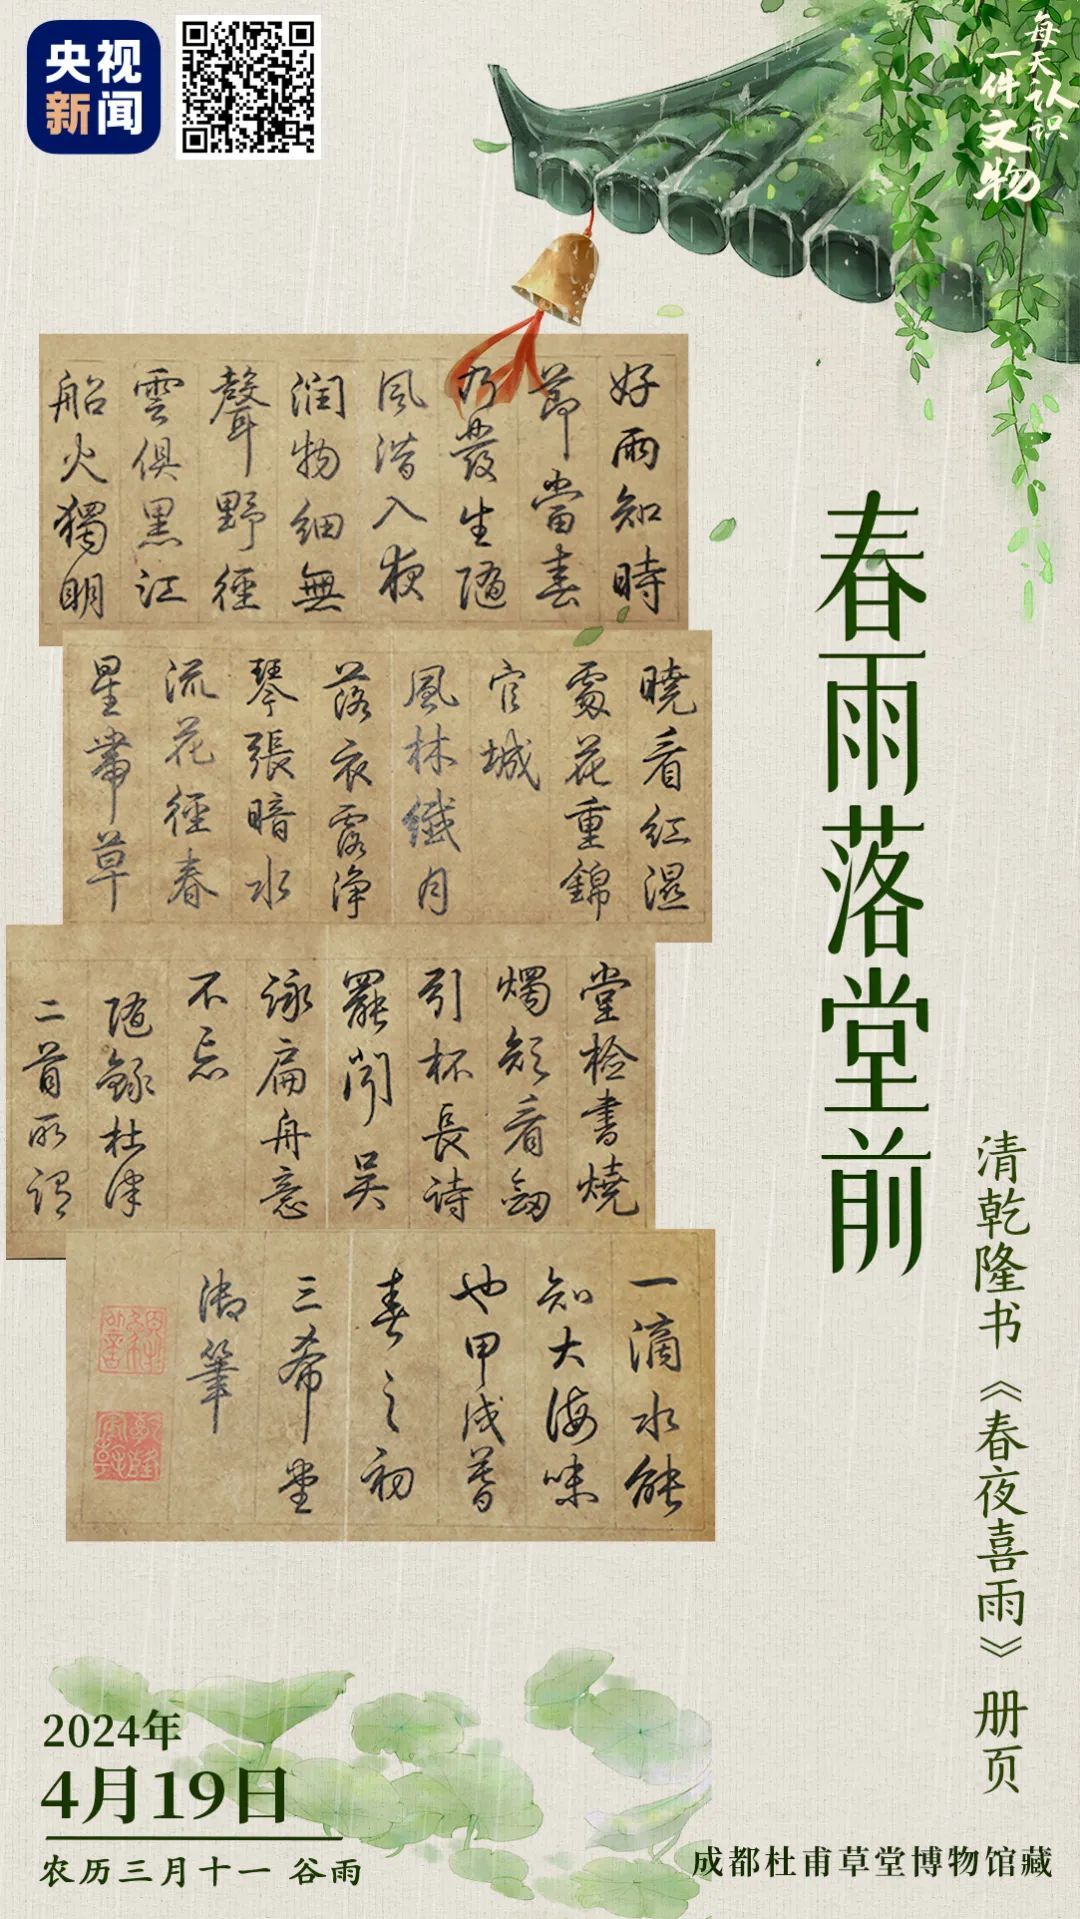 央视
新闻
每天认识
一件文物
好雨知時
節當春
乃發生隨
風潛入夜
润物細無
聲野徑
雲俱黑江
船火獨明
曉看紅濕
處花重錦
官城
風林纖月
落衣露淨
琴張暗水
流花徑春
星帶草
堂檢書燒
燭短看劍
引杯長詩
罷聞吳
詠扁舟意
不忘
隨錄杜律
二首所謂
一滴水能
知大海味
也甲戌暮
春之初
三希堂
御筆
春雨落堂前
清乾隆书《春夜喜雨》册页
2024年
4月19日
农历三月十一 谷雨
成都杜甫草堂博物馆藏